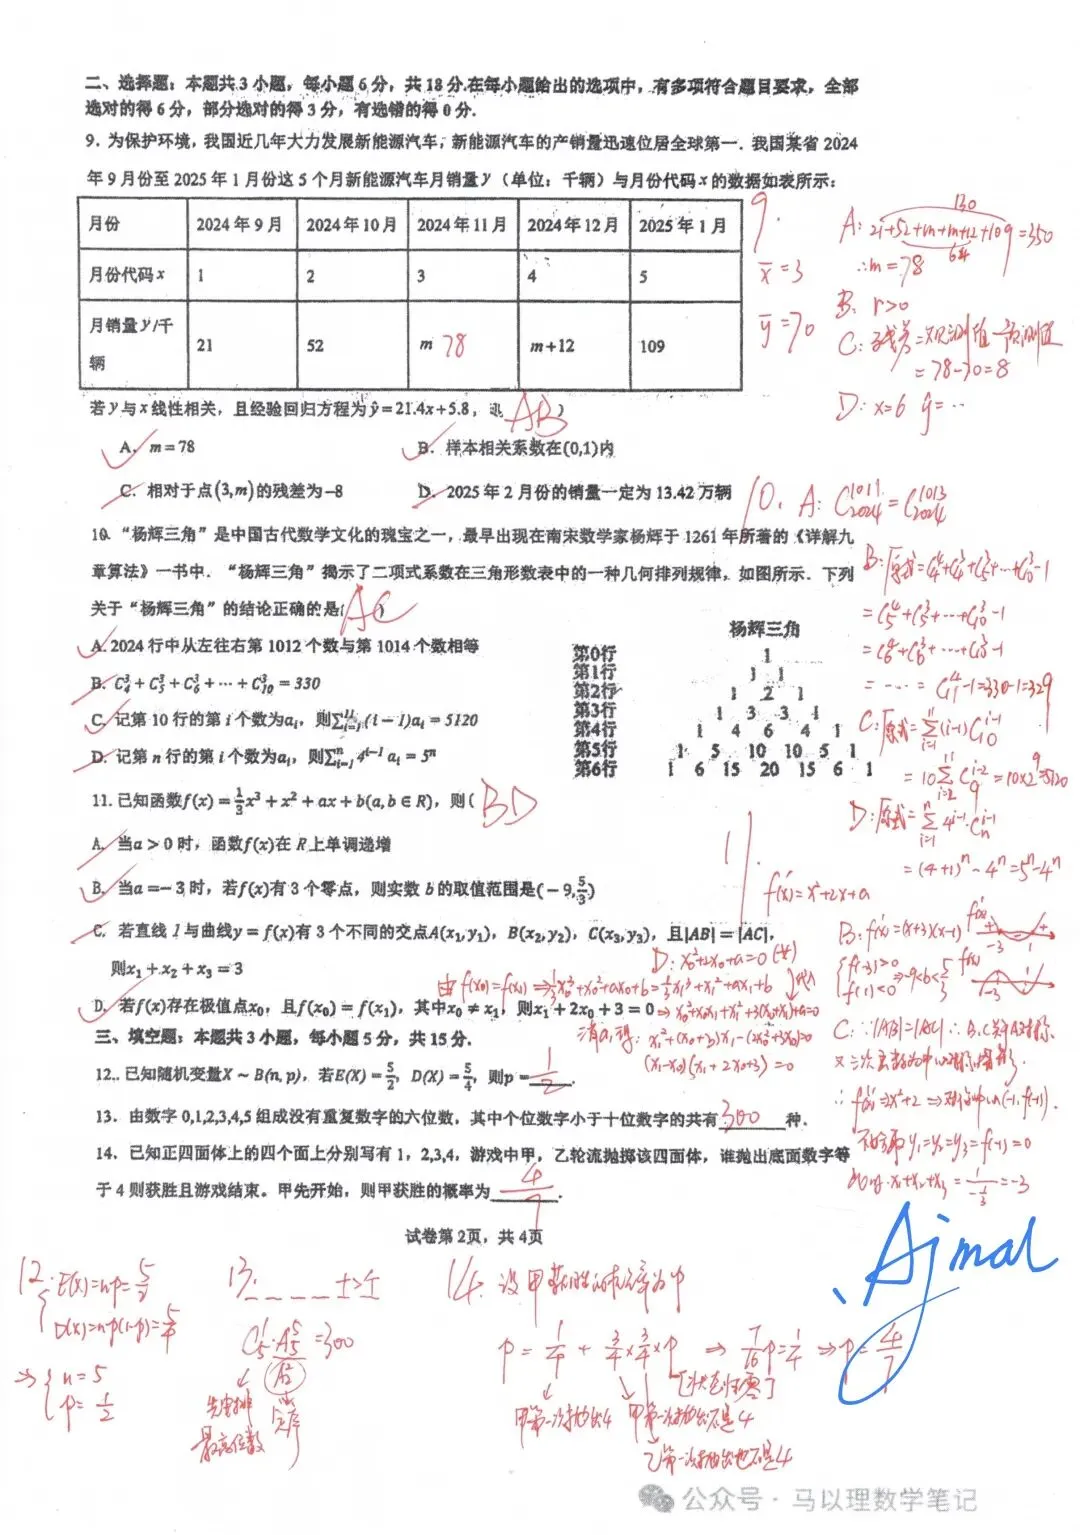 二、选择题：本题共3小题，每小题6分，共18分.在每小题给出的选项中，有多项符合题目要求，全部
选对的得6分，部分选对的得3分，有选错的得0分.
9．为保护环境，我国近几年大力发展新能源汽车，新能源汽车的产销量迅速位居全球第一．我国某省2024
年9月份至2025年1月份这5个月新能源汽车月销量y（单位：千辆）与月份代码x的数据如表所示：
月份 2024年9月 2024年10月 2024年11月 2024年12月 2025年1月
月份代码x 1 2 3 4 5
月销量y/千辆 21 52 m 78 m+12 109
9.
x̄=3
ȳ=70
A: 21+52+m+m+12+109=350
130
64
∴m=78
B: r>0
C: 残差=观测值-预测值
=78-70=8
D: x=6 ŷ=…
若y与x线性相关，且经验回归方程为ŷ=21.4x+5.8， AB ）
A．m=78 B．样本相关系数在(0,1)内
C．相对于点(3,m)的残差为-8 D．2025年2月份的销量一定为13.42万辆
10. “杨辉三角”是中国古代数学文化的瑰宝之一，最早出现在南宋数学家杨辉于1261年所著的《详解九
章算法》一书中．“杨辉三角”揭示了二项式系数在三角形数表中的一种几何排列规律，如图所示．下列
关于“杨辉三角”的结论正确的是( AC )
A. 2024行中从左往右第1012个数与第1014个数相等
B. C₄³+C₅³+C₆³+⋯+C₁₀³=330
C. 记第10行的第i个数为aᵢ，则∑ᵢ₌₁¹¹(i-1)aᵢ=5120
D. 记第n行的第i个数为aᵢ，则∑ᵢ₌₁ⁿ4ⁱ⁻¹aᵢ=5ⁿ
杨辉三角
第0行 1
第1行 1 1
第2行 1 2 1
第3行 1 3 3 1
第4行 1 4 6 4 1
第5行 1 5 10 10 5 1
第6行 1 6 15 20 15 6 1
10. A: C₂₀₂₄¹⁰¹¹=C₂₀₂₄¹⁰¹³
B: 原式=C₄⁴+C₄³+C₅³+⋯+C₁₀³-1
=C₅⁴+C₅³+⋯+C₁₀³-1
=C₆⁴+C₆³+⋯+C₁₀³-1
=⋯=C₁₁⁴-1=330-1=329
C: 原式=∑ᵢ₌₁¹¹(i-1)C₁₀ⁱ⁻¹
=10∑ᵢ₌₂¹¹C₉ⁱ⁻²=10×2⁹=5120
D: 原式=∑ᵢ₌₁ⁿ4ⁱ⁻¹·Cₙⁱ⁻¹
=(4+1)ⁿ-4ⁿ=5ⁿ-4ⁿ
11. 已知函数f(x)=1/3x³+x²+ax+b(a,b∈R)，则( BD
A. 当a>0时，函数f(x)在R上单调递增
B. 当a=-3时，若f(x)有3个零点，则实数b的取值范围是(-9,5/3)
C. 若直线l与曲线y=f(x)有3个不同的交点A(x₁,y₁)，B(x₂,y₂)，C(x₃,y₃)，且|AB|=|AC|，
则x₁+x₂+x₃=3
D. 若f(x)存在极值点x₀，且f(x₀)=f(x₁)，其中x₀≠x₁，则x₁+2x₀+3=0
11.
f'(x)=x²+2x+a
B: f'(x)=(x+3)(x-1)
f(-3)>0
f(1)<0
⇒-9<b<5/3
f'(x) + - + -3 1
f(x) -3 1
C: ∵|AB|=|AC| ∴B,C关于A对称
又三次函数为中心对称图形.
∴f''(x)=2x+2⇒对称中心(-1,f(-1)).
不妨取y₁=y₂=y₃=f(-1)=0
此时x₁+x₂+x₃=-1/(1/3)=-3
D: x₀²+2x₀+a=0(*)
由f(x₀)=f(x₁)⇒1/3x₀³+x₀²+ax₀+b=1/3x₁³+x₁²+ax₁+b
代入
⇒x₀²+x₀x₁+x₁²+3(x₀+x₁)+3a=0
消a,得: x₁²+(x₀+3)x₁-(2x₀²+3x₀)=0
(x₁-x₀)(x₁+2x₀+3)=0
三、填空题：本题共3小题，每小题5分，共15分.
12.. 已知随机变量X~B(n,p)，若E(X)=5/2，D(X)=5/4，则p= 1/2 .
13．由数字0,1,2,3,4,5组成没有重复数字的六位数，其中个位数字小于十位数字的共有 300 种.
14．已知正四面体上的四个面上分别写有1，2,3,4，游戏中甲，乙轮流抛掷该四面体，谁抛出底面数字等
于4则获胜且游戏结束。甲先开始，则甲获胜的概率为 4/7 .
试卷第2页，共4页
Ajmal
12. E(X)=np=5/2
D(X)=np(1-p)=5/4
⇒ n=5
p=1/2
13. 十>个
C₅¹·A₅⁵/A₂²=300
先电排
最高位数
定序
14. 设甲获胜的概率为p
p=1/4+3/4×3/4×p⇒7/16p=1/4⇒p=4/7
[状态归零]
甲第一次抛出4 甲第一次抛出不是4
乙第一次抛出也不是4
公众号·马以理数学笔记